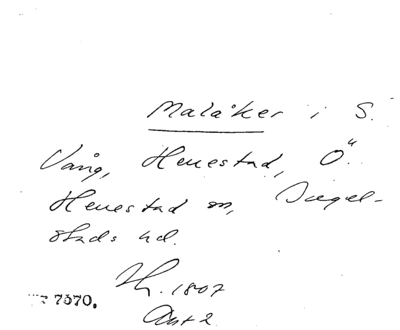 Malåker i S.
Vång, Herrestad, Ö.
Herrestad sn, Ingel-
stads hd.
1807
Akt 2
7570.